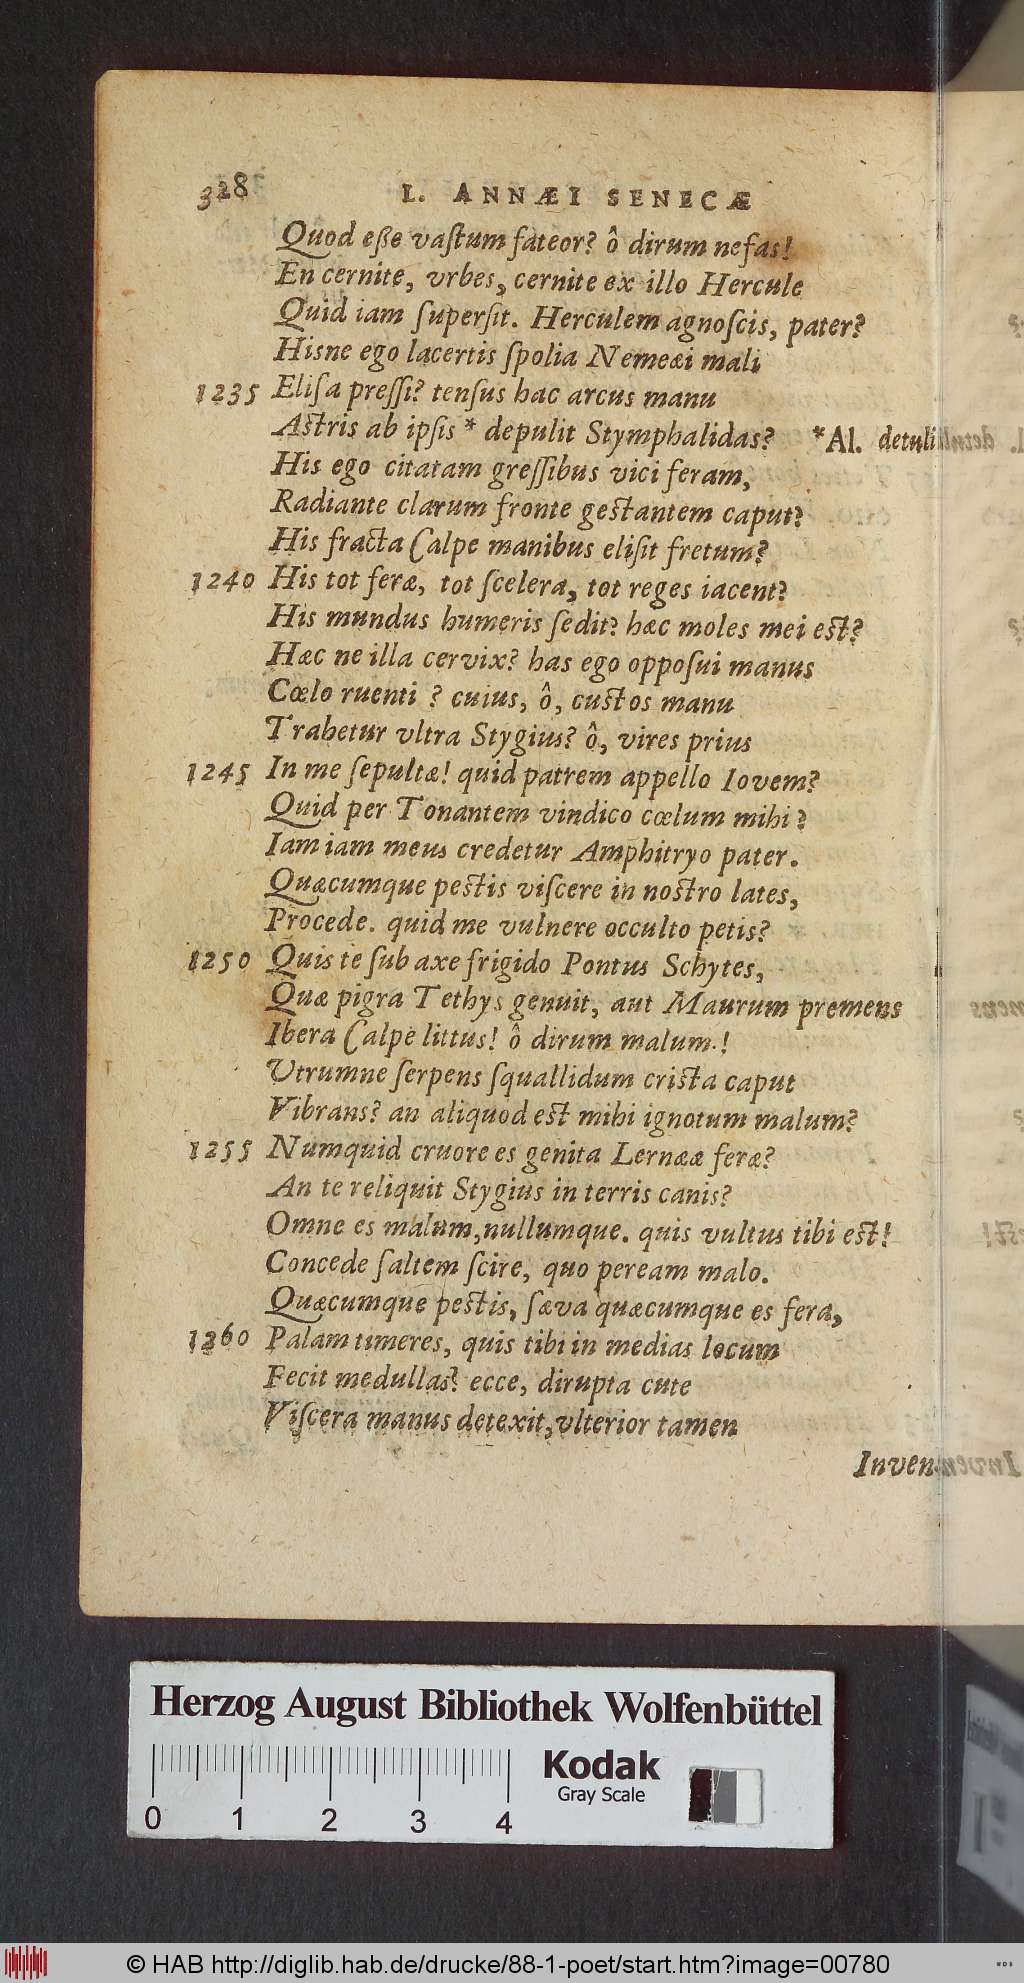 328
L. ANNÆI SENECÆ
Quod eße vaſtum fateor? ô dirum nefas!
En cernite, vrbes, cernite ex illo Hercule
Quid iam ſuperſit. Herculem agnoſcis, pater?
Hisne ego lacertis ſpolia Nemeæi mali
1235 Eliſa preſſi? tenſus hac arcus manu
Aſtris ab ipſis * depulit Stymphalidas? *Al. detuli
His ego citatam greſſibus vici feram,
Radiante clarum fronte geſtantem caput?
His fracta Calpe manibus eliſit fretum?
1240 His tot feræ, tot ſcelera, tot reges iacent?
His mundus humeris ſedit? hæc moles mei eſt?
Hæc ne illa cervix? has ego oppoſui manus
Cœlo ruenti ? cuius, ô, cuſtos manu
Trahetur vltra Stygius? ô, vires prius
1245 In me ſepultæ! quid patrem appello Iovem?
Quid per Tonantem vindico cœlum mihi?
Iam iam meus credetur Amphitryo pater.
Quæcumque peſtis viſcere in noſtro lates,
Procede. quid me vulnere occulto petis?
1250 Quis te ſub axe frigido Pontus Schytes,
Quæ pigra Tethys genuit, aut Maurum premens
Ibera Calpe littus! ô dirum malum.!
Vtrumne ſerpens ſquallidum criſta caput
Vibrans? an aliquod eſt mihi ignotum malum?
1255 Numquid cruore es genita Lernææ feræ?
An te reliquit Stygius in terris canis?
Omne es malum, nullumque. quis vultus tibi eſt!
Concede ſaltem ſcire, quo peream malo.
Quæcumque peſtis, ſæva quæcumque es fera,
1260 Palam timeres, quis tibi in medias locum
Fecit medullas? ecce, dirupta cute
Viſcera manus detexit, vlterior tamen
Inven
Herzog August Bibliothek Wolfenbüttel
Kodak
Gray Scale
0 1 2 3 4
© HAB http://diglib.hab.de/drucke/88-1-poet/start.htm?image=00780